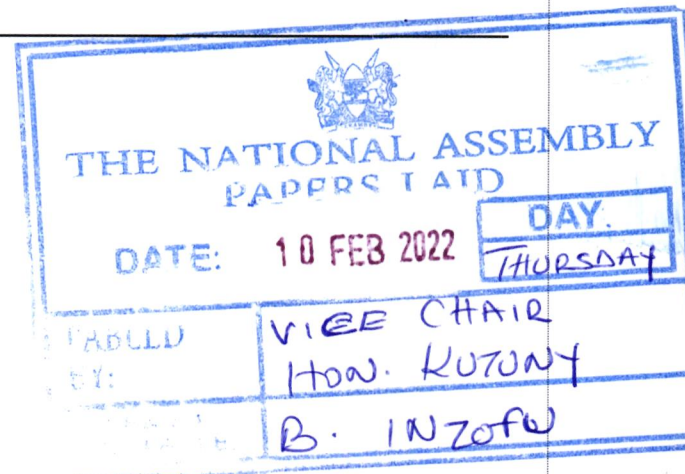 THE NATIONAL ASSEMBLY
PAPERS LAID
DATE: 10 FEB 2022
DAY.
THURSDAY
TABLED BY:
VICE CHAIR
HON. KUTUNY
B. INZOFU